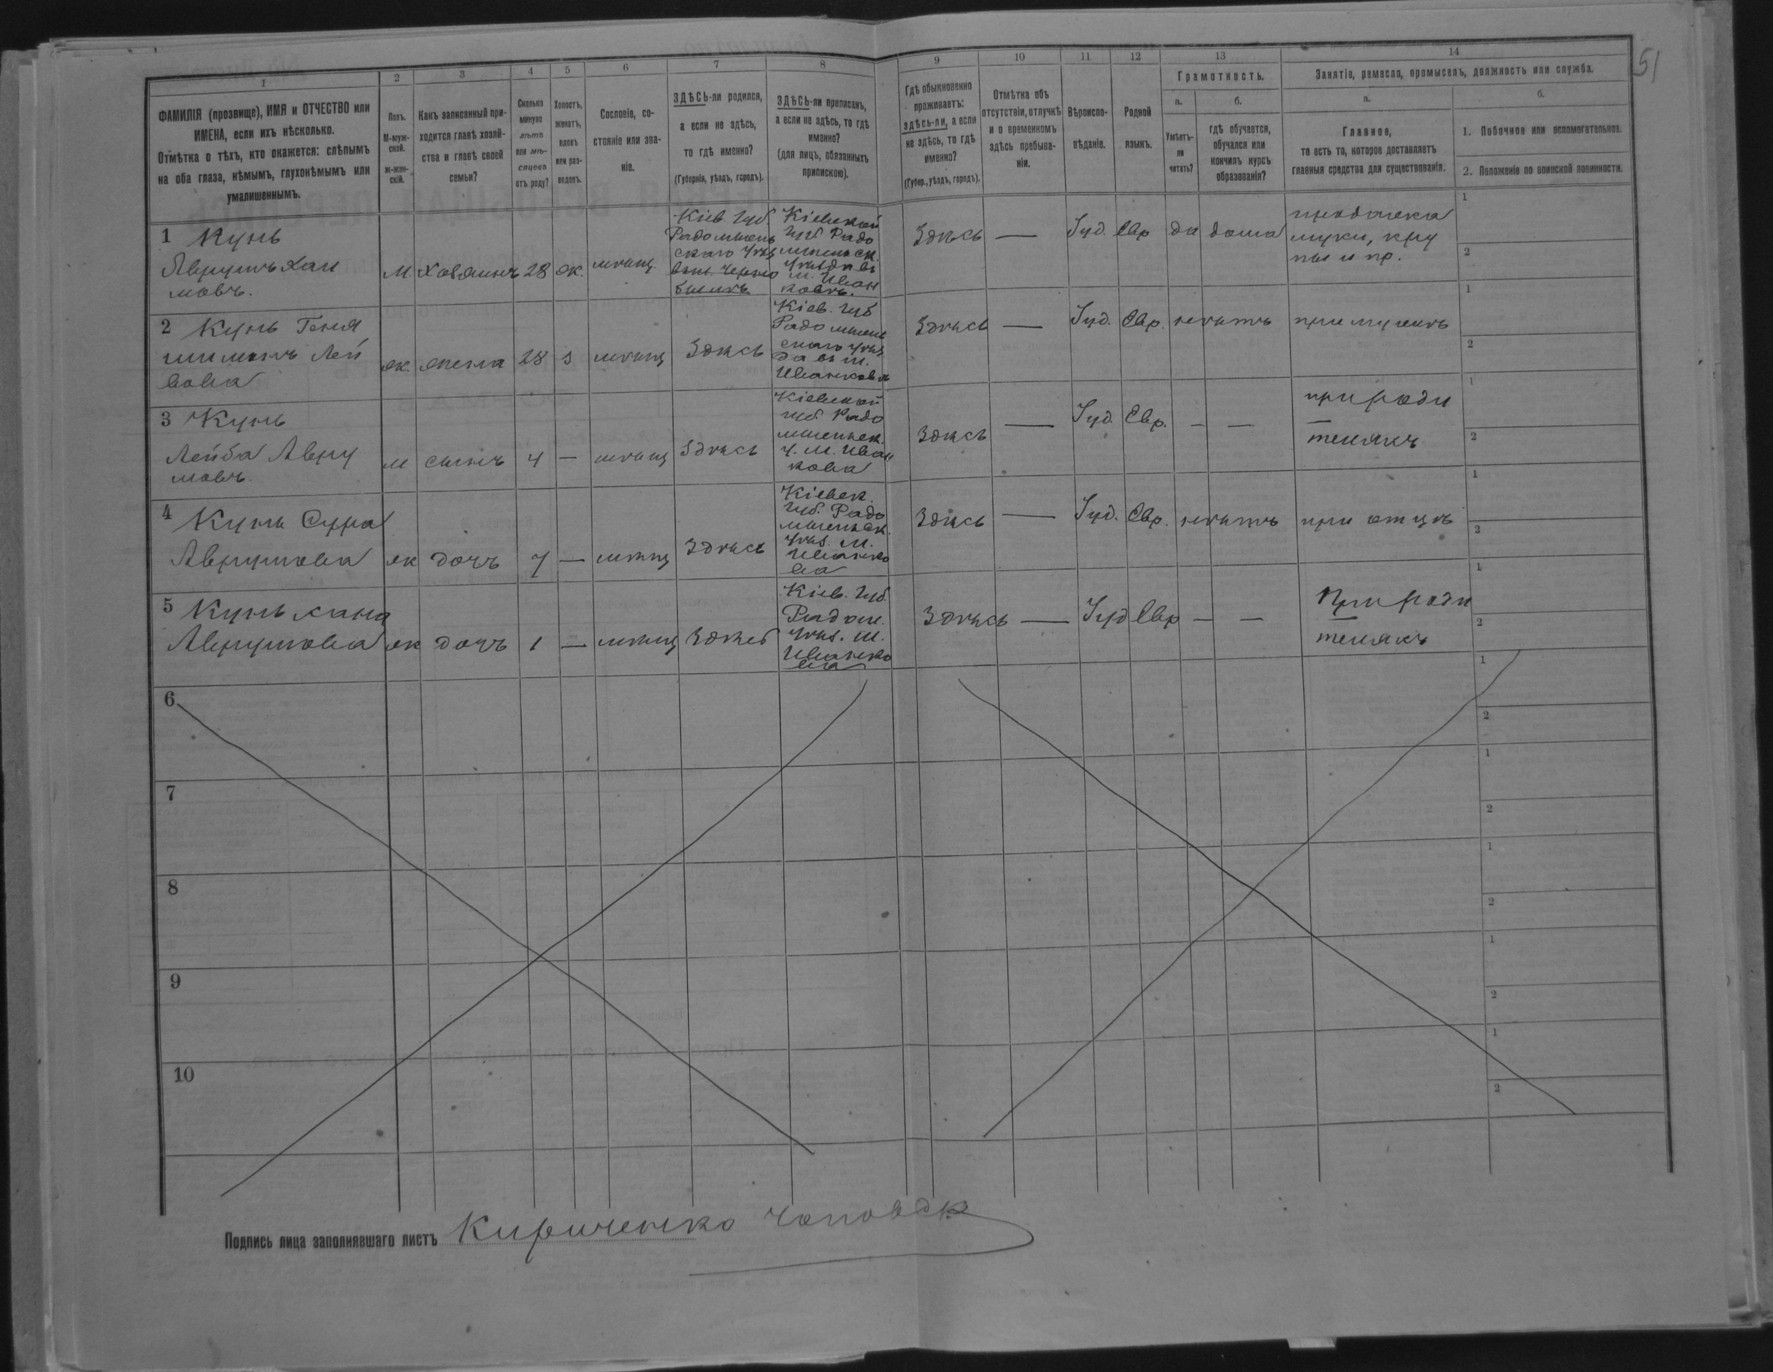 51
1 2 3 4 5 6 7 8 9 10 11 12 13 14
ФАМИЛІЯ (прозвище), ИМЯ и ОТЧЕСТВО или
ИМЕНА, если ихъ нѣсколько.
Отмѣтка о тѣхъ, кто окажется: слѣпымъ
на оба глаза, нѣмымъ, глухонѣмымъ или
умалишеннымъ.
Полъ.
М-муж-
ской.
Ж-жен-
скій.
Какъ записанный при-
ходится главѣ хозяй-
ства и главѣ своей
семьи?
Сколько
минуло
лѣтъ
или мѣ-
сяцевъ
отъ роду?
Холостъ,
женатъ,
вдовъ
или раз-
веденъ.
Сословіе, со-
стояніе или зва-
ніе.
ЗДѢСЬ-ли родился,
а если не здѣсь,
то гдѣ именно?
(Губернія, уѣздъ, городъ).
ЗДѢСЬ-ли приписанъ,
а если не здѣсь, то гдѣ
именно?
(для лицъ, обязанныхъ
припискою).
Гдѣ обыкновенно
проживаетъ:
здѣсь-ли, а если
не здѣсь, то гдѣ
именно?
(Губер., уѣздъ, городъ).
Отмѣтка объ
отсутствіи, отлучкѣ
и о временномъ
здѣсь пребыва-
ніи.
Вѣроиспо-
вѣданіе.
Родной
языкъ.
Грамотность.
а.
Умѣетъ-
ли
читать?
б.
гдѣ обучается,
обучался или
кончилъ курсъ
образованія?
Занятіе, ремесло, промыселъ, должность или служба.
а.
Главное,
то есть то, которое доставляетъ
главныя средства для существованія.
б.
1. Побочное или вспомогательное.
2. Положеніе по воинской повинности.
1 Кунь
Аврумъ Хаи
мовъ.
м хозяинъ 28 ж. мѣщ.
Кіев губ
Радомысль
скаго уѣз
въ м. Черно
быль
Кіевской
губ Радо
мысльск.
уѣзда въ
м. Иван
ковъ.
Здѣсь — Іуд. Евр да дома
продажа
муки, кру
пы и пр.
1
2
2 Кунь Геня
Лей
бова
ж. жена 28 з мѣщ Здѣсь
Кіев. губ
Радомысль
скаго уѣз
да въ м.
Иванкова
Здѣсь — Іуд. Евр. нѣтъ при мужѣ
1
2
3 Кунь
Лейба Авру
мовъ.
м сынъ 4 — мѣщ Здѣсь
Кіевской
губ Радо
мысльск.
у. м. Иван
кова
Здѣсь — Іуд. Евр. — —
при роди
теляхъ
1
2
4 Кунь Сура
Аврумова ж дочъ 7 — мѣщ Здѣсь
Кіевск.
губ. Радо
мысльск.
уѣз. м.
Иванко
ва
Здѣсь — Іуд. Евр. нѣтъ при отцѣ
1
2
5 Кунь Хана
Аврумова ж дочъ 1 — мѣщ Здѣсь
Кіев. губ.
Радом.
уѣз. м.
Иванко
ва
Здѣсь — Іуд Евр — —
При роди
теляхъ
1
2
6
1
2
7
1
2
8
1
2
9
1
2
10
1
2
Подпись лица заполнявшаго листъ Кириченко